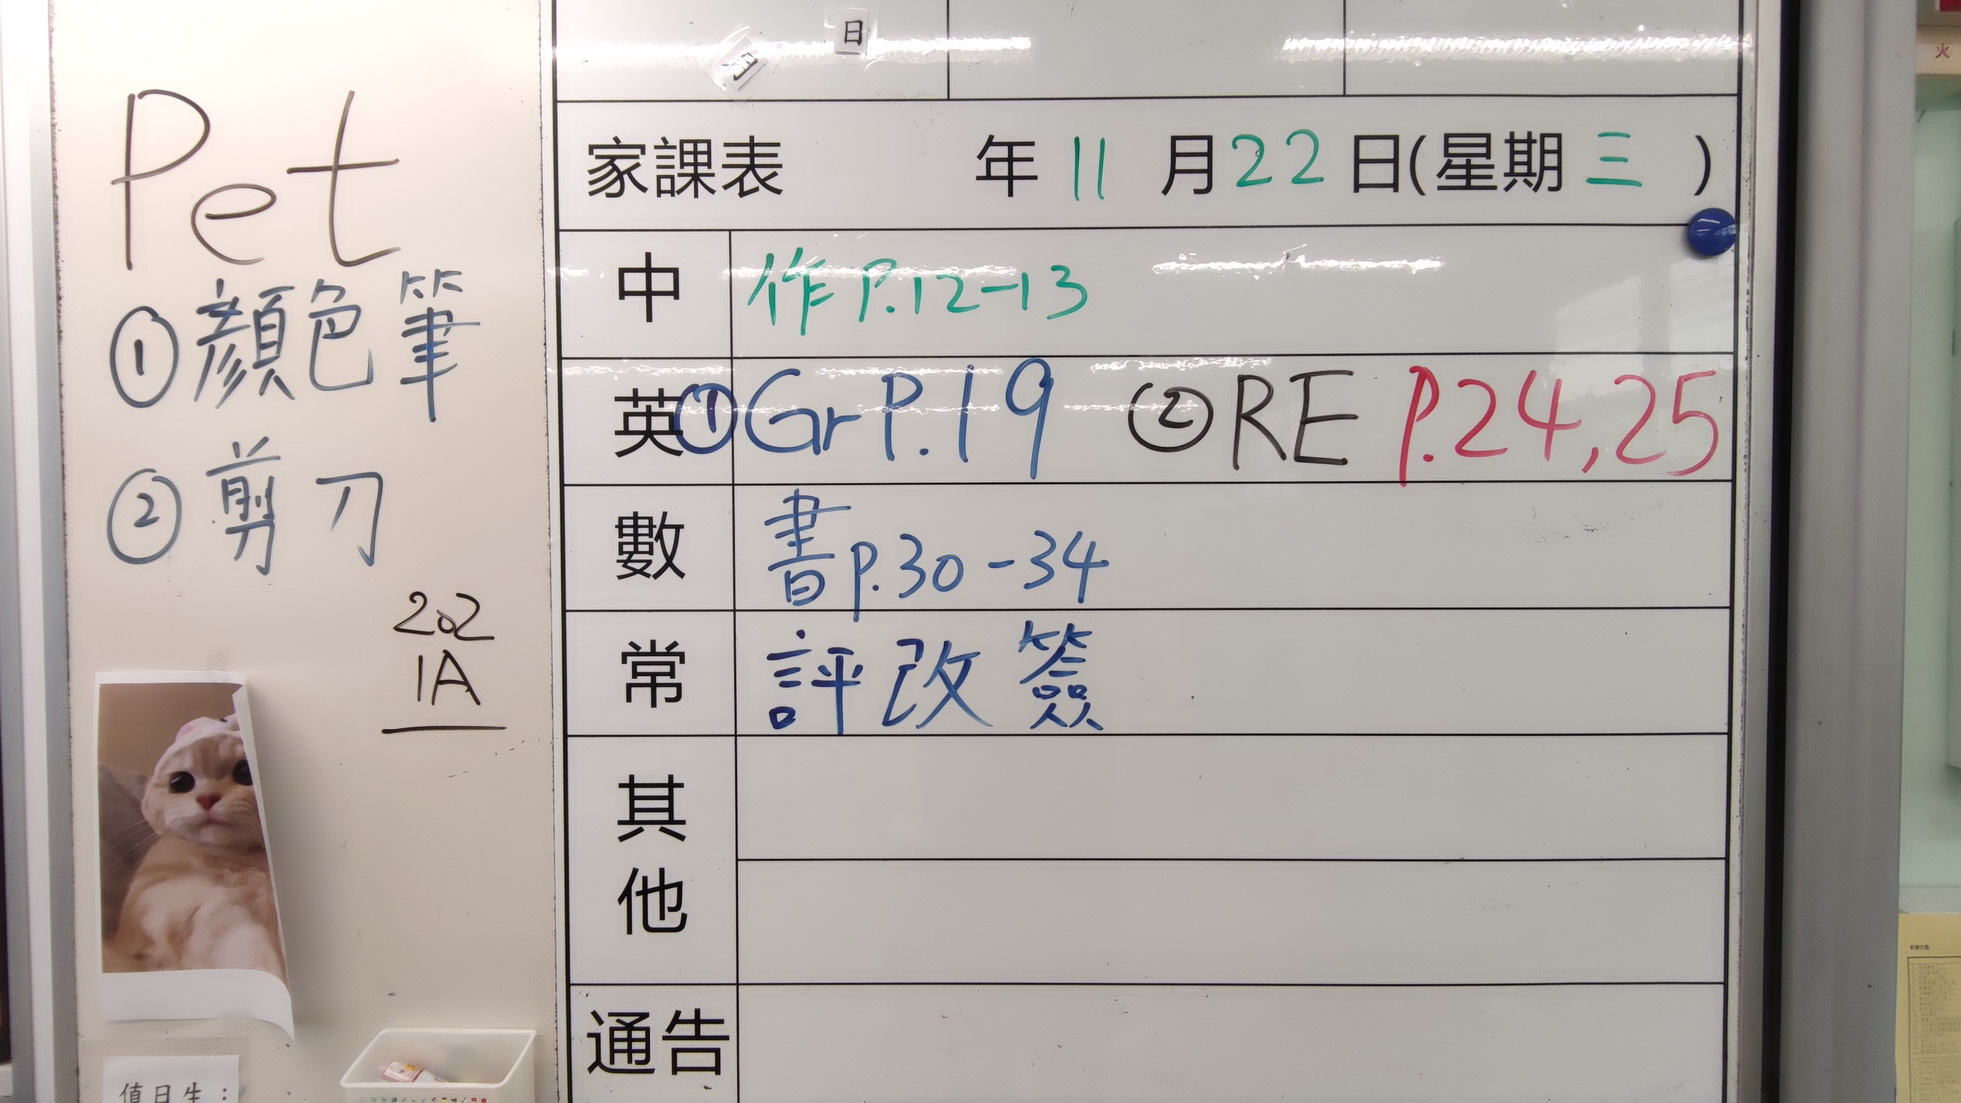 Pet
①顏色筆
②剪刀
202
1A
值日生：
月
日
家課表 年 11 月 22 日(星期 三 )
中 作 P.12-13
英 ①Gr P.19 ②RE P.24,25
數 書 p.30-34
常 評改簽
其他
通告
火